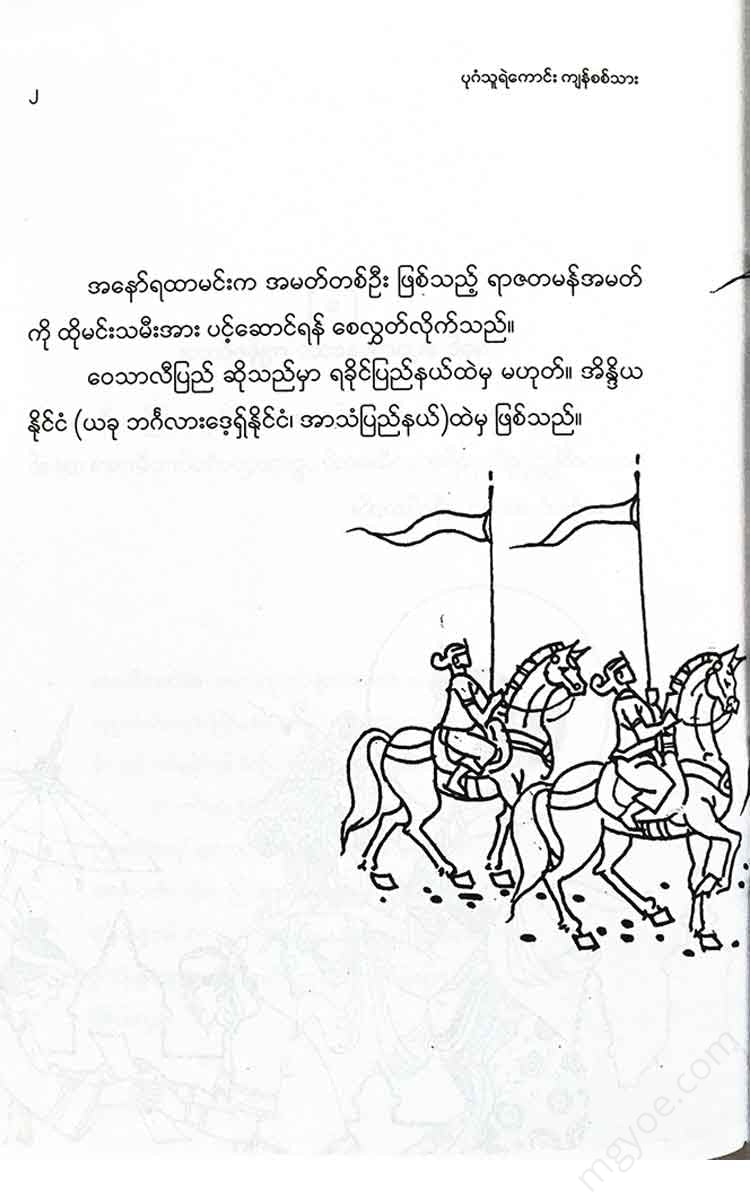 ပုဂံသူရဲကောင်း ကျန်စစ်သား
၂
အနော်ရထာမင်းက အမတ်တစ်ဦး ဖြစ်သည့် ရာဇတမန်အမတ်
ကို ထိုမင်းသမီးအား ပင့်ဆောင်ရန် စေလွှတ်လိုက်သည်။
ဝေသာလီပြည် ဆိုသည်မှာ ရခိုင်ပြည်နယ်ထဲမှ မဟုတ်။ အိန္ဒိယ
နိုင်ငံ (ယခု ဘင်္ဂလားဒေ့ရှ်နိုင်ငံ၊ အာသံပြည်နယ်)ထဲမှ ဖြစ်သည်။
mgyoe.com